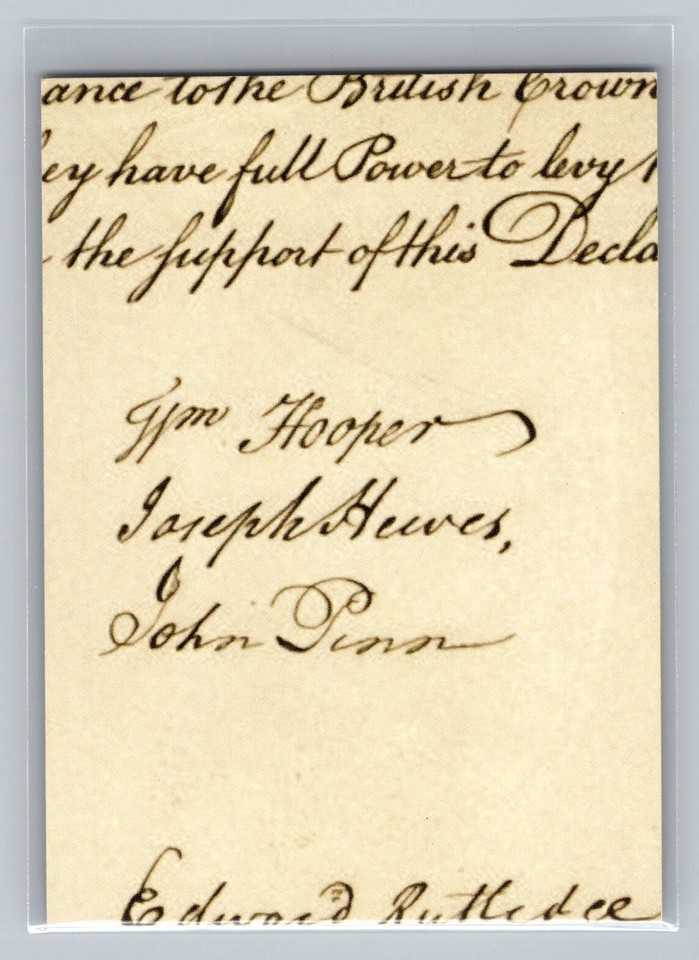 ance to the British Crown
ey have full Power to levy
the support of this Decla
Wm Hooper
Joseph Hewes,
John Penn
Edward Rutledge